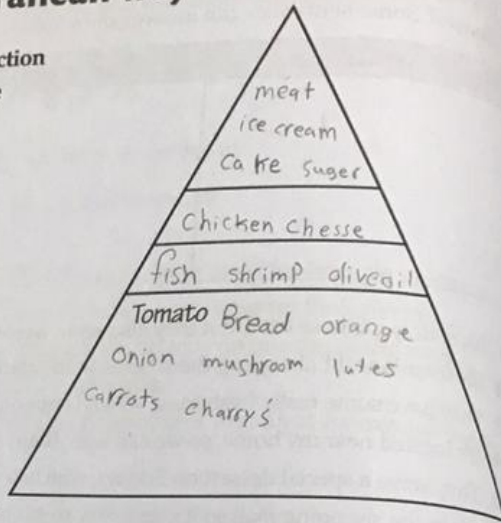 ction
meat
ice cream
cake suger
chicken chesse
fish shrimp oliveoil
Tomato Bread orange
onion mushroom lutes
carrots charry's